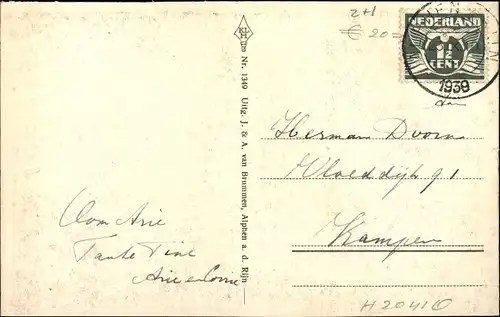 2+1
€ 20=
NEDERLAND
1½
CENT
1939
Nr. 1349 Uitg. J. & A. van Brummen, Alphen a. d. Rijn
Herman Doorn
Vloeddijk 91
Kampen
Oom Arie
Tante Tine
Arie en Corrie
H20410